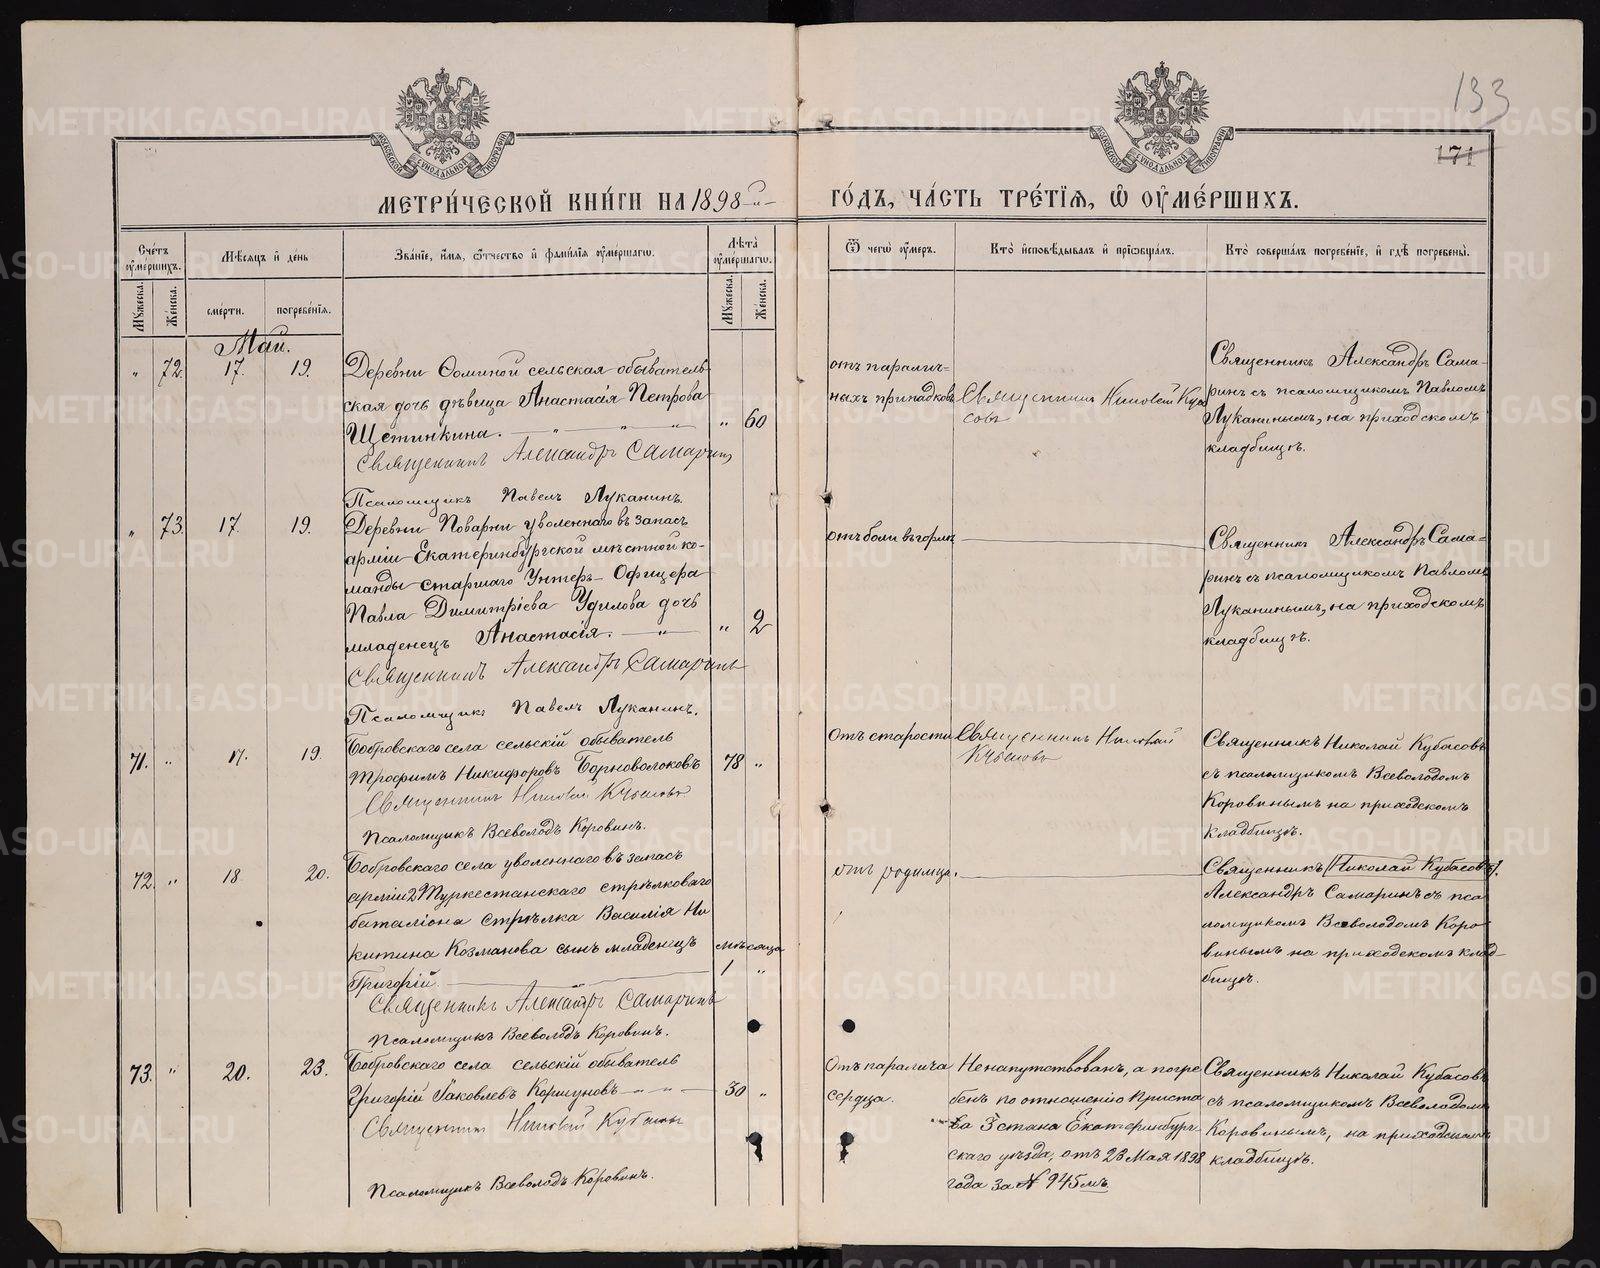 133
171
МЕТРИ́ЧЕСКОЙ КНИ́ГИ НА 1898 й
ГО́ДЪ, ЧА́СТЬ ТРЕ́ТІѦ, Ѡ ОУМЕ́РШИХЪ.
Счетъ оумершихъ.
Мѣсяцъ и день
Званіе, имя, отчество и фамилія оумершагω.
Лѣта оумершагω.
Ѿ чегω оумеръ.
Кто исповѣдывалъ и пріωбщалъ.
Кто совершалъ погребеніе, и гдѣ погребены.
Мужеска.
Женска.
смерти.
погребенія.
Мужеска.
Женска.
Май.
" 72. 17. 19.
Деревни Ѳоминой сельская обыватель-
ская дочь дѣвица Анастасія Петрова
Щетинкина. " 60
Священникъ Александръ Самаринъ
Псаломщикъ Павелъ Луканинъ.
отъ паралич-
ныхъ припадковъ
Священникъ Николай Куба
совъ
Священникъ Александръ Сама-
ринъ съ псаломщикомъ Павломъ
Луканинымъ, на приходскомъ
кладбищѣ.
" 73. 17. 19.
Деревни Поварни уволеннаго въ запасъ
арміи Екатеринбургской мѣстной ко-
манды старшаго Унтеръ-Офицера
Павла Димитріева Удилова дочь
младенецъ Анастасія. " 2
Священникъ Александръ Самаринъ
Псаломщикъ Павелъ Луканинъ.
отъ боли въ горлѣ
Священникъ Александръ Сама-
ринъ съ псаломщикомъ Павломъ
Луканинымъ, на приходскомъ
кладбищѣ.
71. " 17. 19.
Бобровскаго села сельскій обыватель
Трофимъ Никифоровъ Борноволоковъ 78 "
Священникъ Николай Кубасовъ
Псаломщикъ Всеволодъ Коровинъ.
Отъ старости
Священникъ Николай
Кубасовъ
Священникъ Николай Кубасовъ
съ псаломщикомъ Всеволодомъ
Коровинымъ на приходскомъ
кладбищѣ.
72. " 18 20.
Бобровскаго села уволеннаго въ запасъ
арміи 2 Туркестанскаго стрѣлковаго
баталіона стрѣлка Василія Ни
китина Козманова сынъ младенецъ мѣсяца
Григорій. 1 "
Священникъ Александръ Самаринъ
Псаломщикъ Всеволодъ Коровинъ.
отъ родимца.
Священникъ (Николай Кубасовъ).
Александръ Самаринъ съ пса
ломщикомъ Всеволодомъ Коро
винымъ на приходскомъ клад-
бищѣ.
73. " 20. 23.
Бобровскаго села сельскій обыватель
Григорій Яковлевъ Коршуновъ 30 "
Священникъ Николай Кубасовъ
Псаломщикъ Всеволодъ Коровинъ.
Отъ паралича
сердца.
Не напутствованъ, а погре
бенъ по отношенію Приста
ва 3 стана Екатеринбург-
скаго уѣзда, отъ 23 Мая 1898
года за № 945 мъ
Священникъ Николай Кубасовъ
съ псаломщикомъ Всеволодомъ
Коровинымъ, на приходскомъ
кладбищѣ.
METRIKI.GASO-URAL.RU